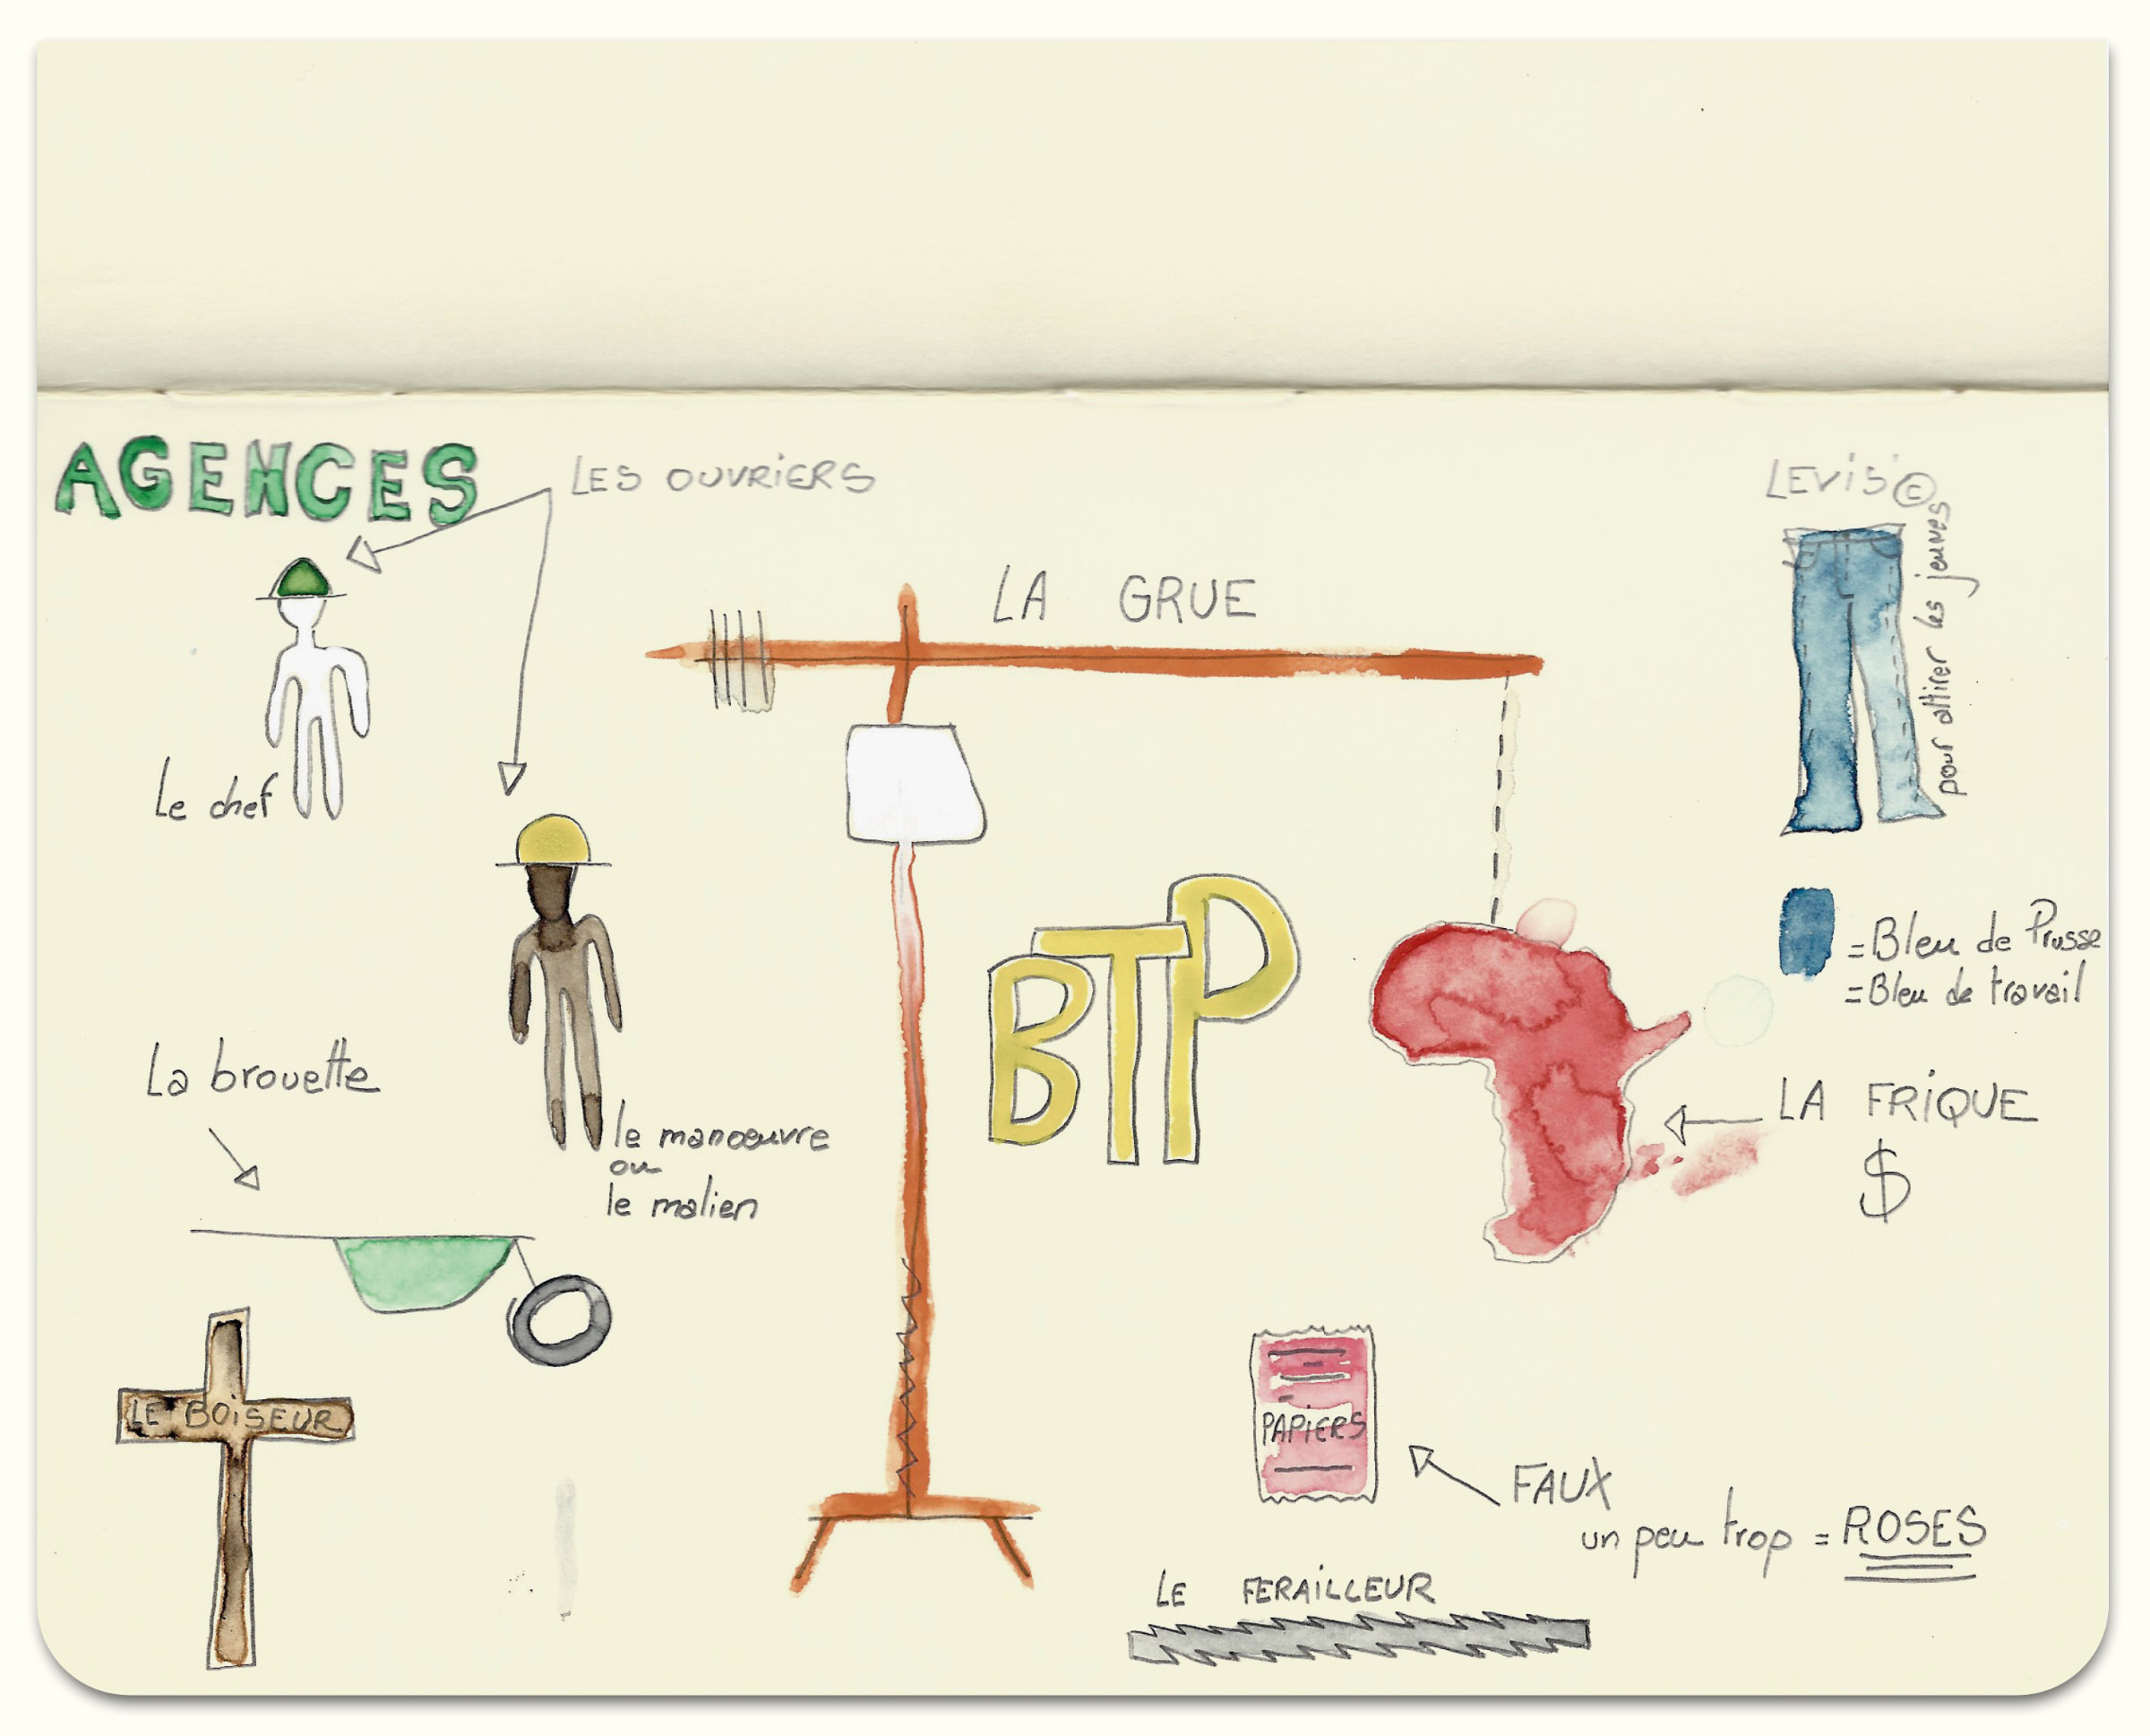 AGENCES
LES OUVRIERS
LEVIS'©
pour attirer les jeunes
LA GRUE
Le chef
BTP
= Bleu de Prusse
= Bleu de travail
La brouette
le manoeuvre
ou
le malien
LA FRIQUE
$
LE BOISEUR
PAPIERS
FAUX
un peu trop = ROSES
LE FERAILLEUR